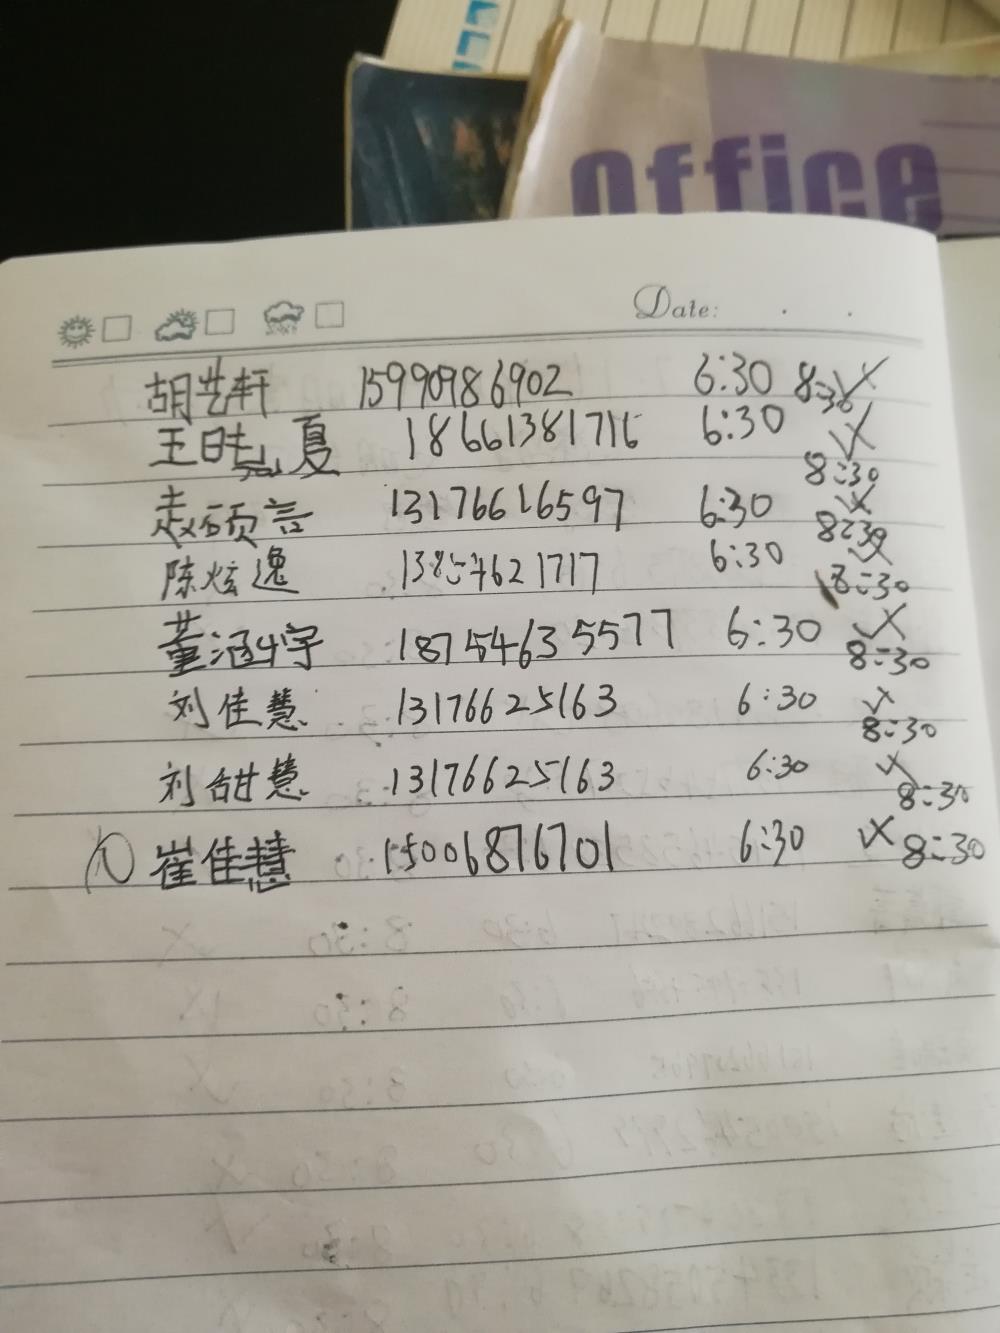 office
Date:
胡艺轩 15990986902 6:30 8:30
王晓夏 18661381716 6:30 8:30
赵硕言 13176616597 6:30 8:30
陈炫逸 6:30 8:30
董涵宇 18754635577 6:30 8:30
刘佳慧 13176625163 6:30 8:30
刘甜慧 13176625163 6:30 8:30
崔佳慧 15006876701 6:30 8:30